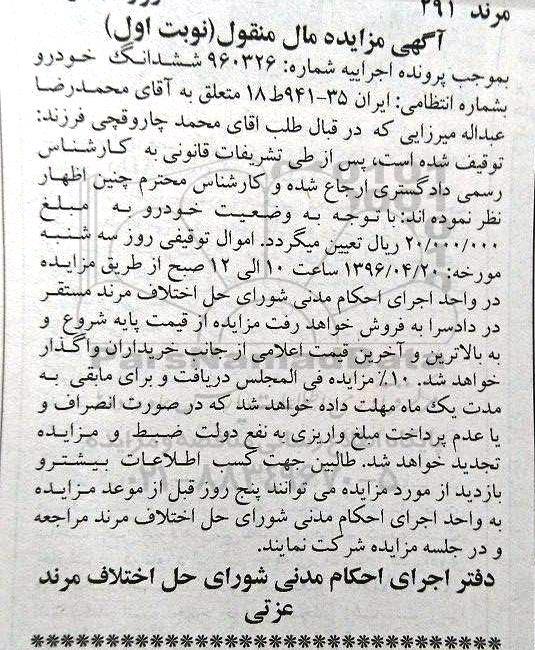 مرند ۲۹۱
آگهی مزایده مال منقول(نوبت اول)
بموجب پرونده اجراییه شماره: ۹۶۰۳۲۶ ششدانگ خودرو
بشماره انتظامی: ایران ۳۵-۹۴۱ط۱۸ متعلق به آقای محمدرضا
عبداله میرزایی که در قبال طلب اقای محمد چاروقچی فرزند:
توقیف شده است، پس از طی تشریفات قانونی به کارشناس
رسمی دادگستری ارجاع شده و کارشناس محترم چنین اظهار
نظر نموده اند: با توجه به وضعیت خودرو به مبلغ
۲۰/۰۰۰/۰۰۰ ریال تعیین میگردد. اموال توقیفی روز سه شنبه
مورخه: ۱۳۹۶/۰۴/۲۰ ساعت ۱۰ الی ۱۲ صبح از طریق مزایده
در واحد اجرای احکام مدنی شورای حل اختلاف مرند مستقر
در دادسرا به فروش خواهد رفت مزایده از قیمت پایه شروع و
به بالاترین و آخرین قیمت اعلامی از جانب خریداران واگذار
خواهد شد. ۱۰٪ مزایده فی المجلس دریافت و برای مابقی به
مدت یک ماه مهلت داده خواهد شد که در صورت انصراف و
یا عدم پرداخت مبلغ واریزی به نفع دولت ضبط و مزایده
تجدید خواهد شد. طالبین جهت کسب اطلاعات بیشتر و
بازدید از مورد مزایده می توانند پنج روز قبل از موعد مزایده
به واحد اجرای احکام مدنی شورای حل اختلاف مرند مراجعه
و در جلسه مزایده شرکت نمایند.
دفتر اجرای احکام مدنی شورای حل اختلاف مرند
عزتی